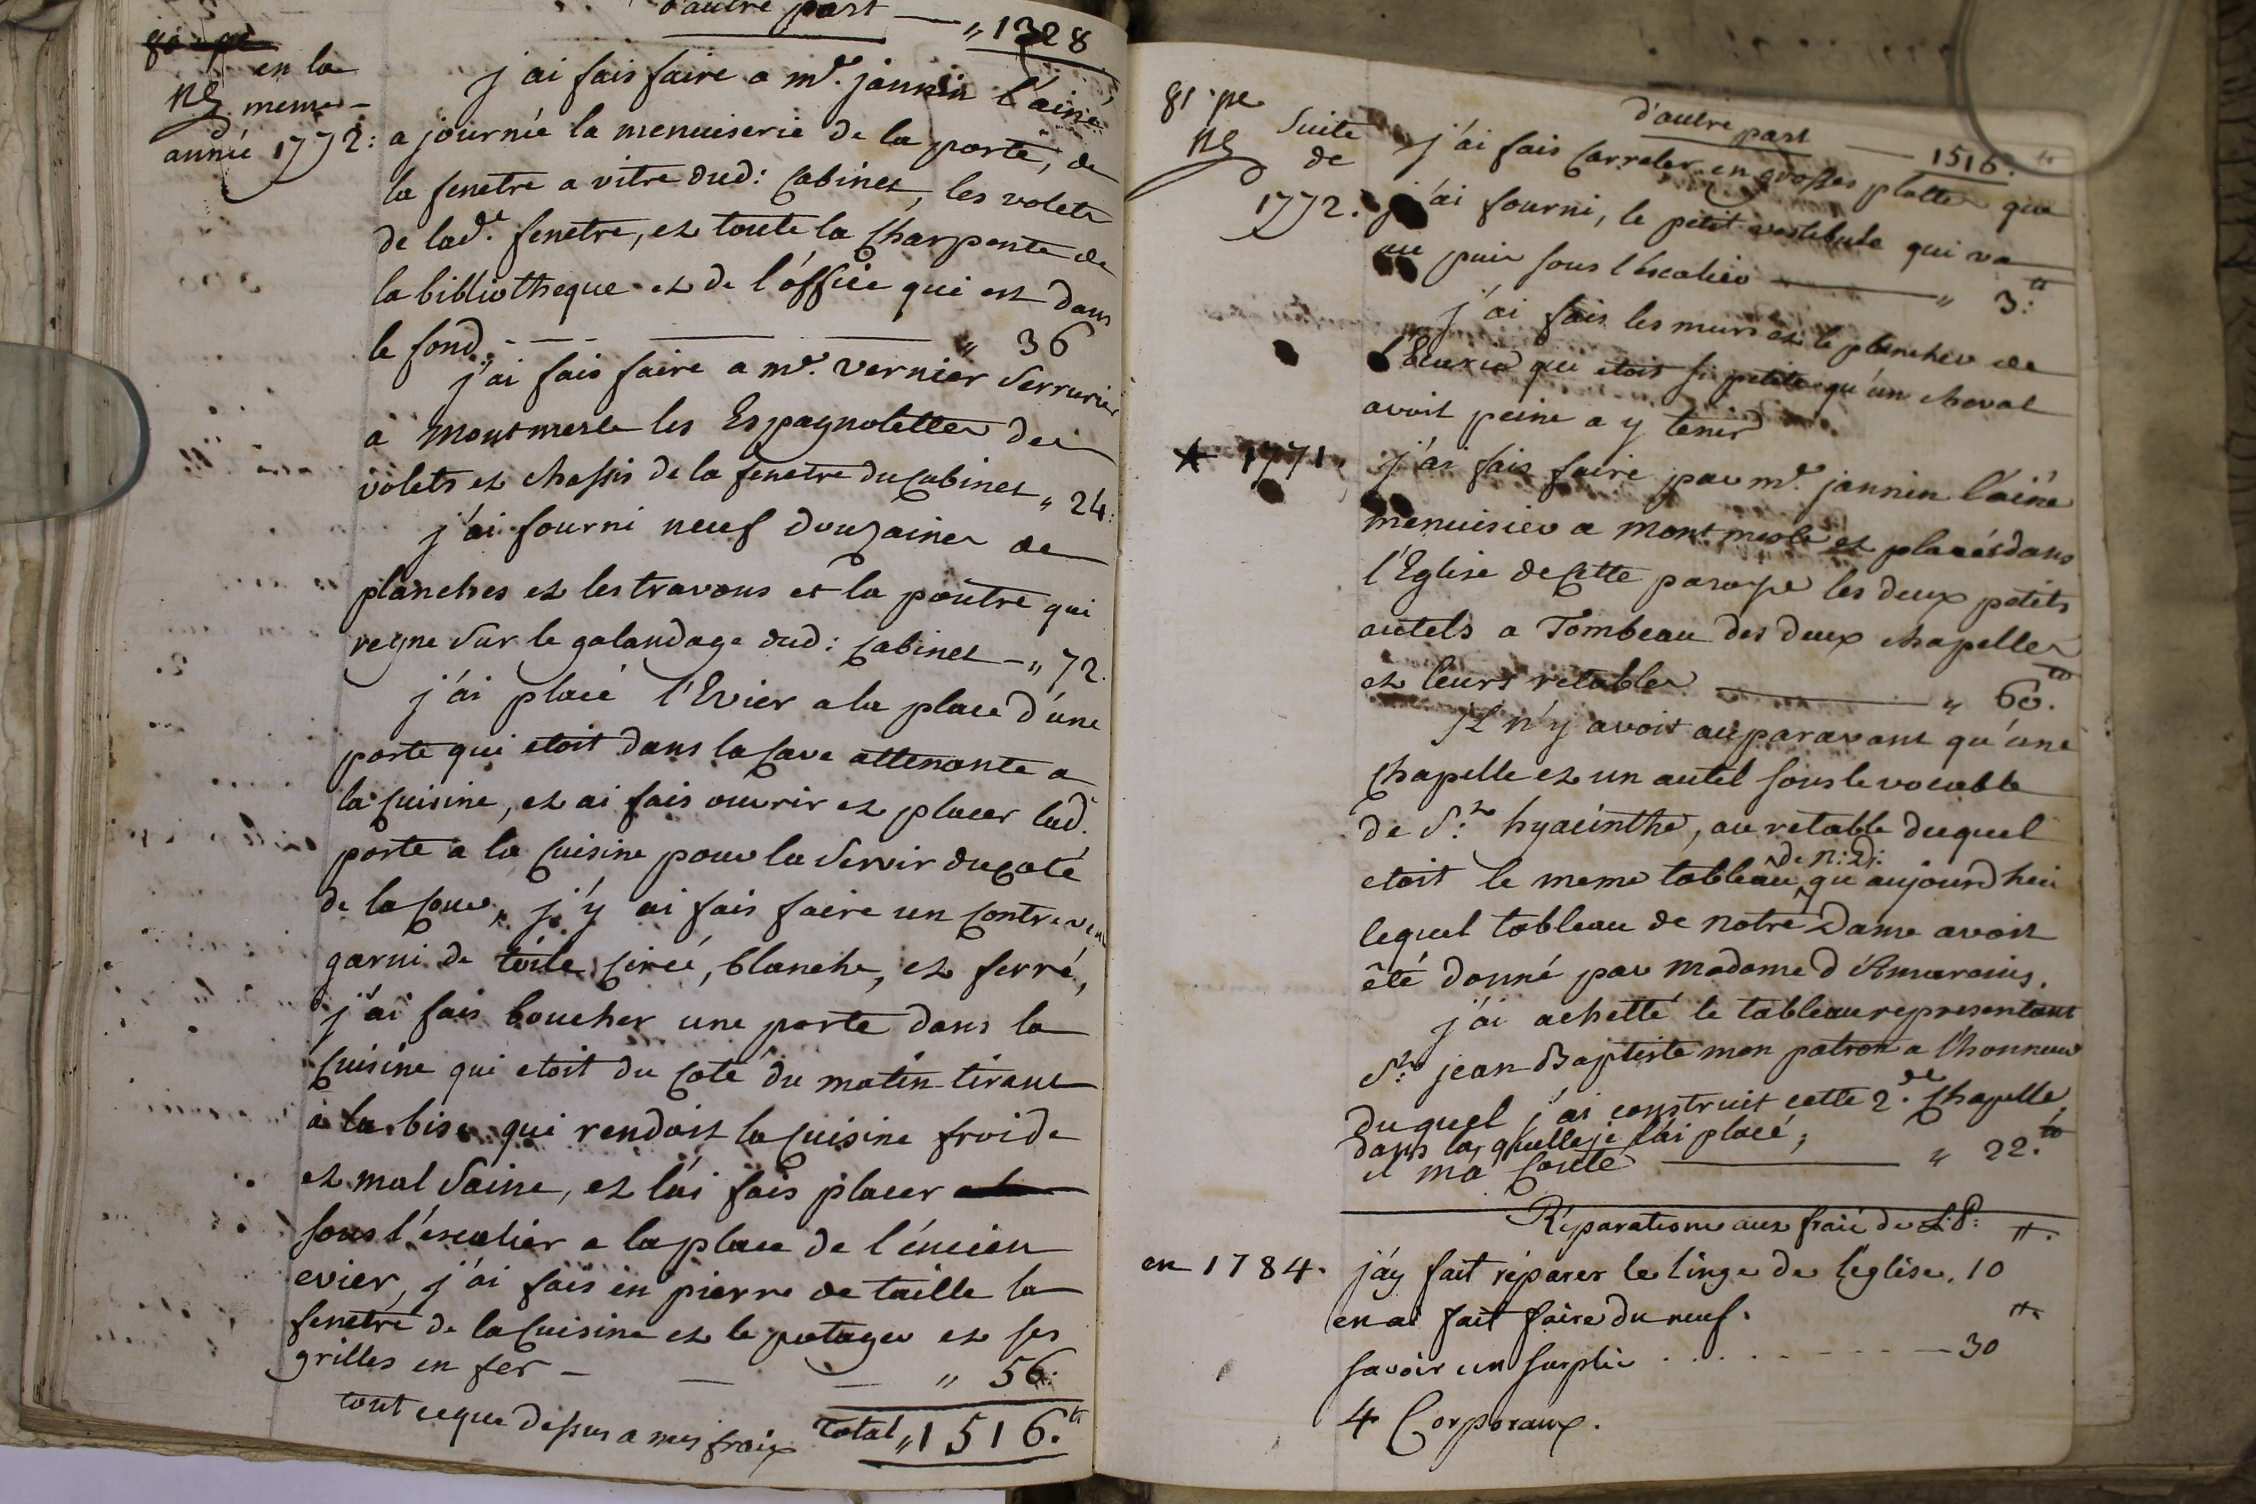 d'autre part — „ 1328
en la
NB meme
année 1772:
j'ai fais faire a mr. jannin l'ainé
a journée la menuiserie de la porte, de
la fenetre a vitre dud: Cabinet, les volets
de lade. fenetre, et toute la Charpente de
la bibliotheque et de l'office qui est dans
le fond. — — — „ 36
j'ai fais faire a mr. vernier Serrurier
à Montmerle les Espagnolettes des
volets et chassis de la fenetre du Cabinet „ 24:
j'ai fourni neuf douzaines de
planches et les travons et la poutre qui
regne sur le galandage dud: Cabinet — „ 72.
j'ai placé l'Evier a la place d'une
porte qui etoit dans la Cave attenante a
la Cuisine, et ai fais ouvrir et placer lad.
porte a la Cuisine pour la Servir du Coté
de la Cour, j'y ai fais faire un Contrevent
garni de toile Cirée, blanche, et ferré,
j'ai fais boucher une porte dans la
Cuisine qui etoit du Coté du matin tirant
à la bise qui rendoit la Cuisine froide
et mal Saine, et l'ai fais placer
sous l'éscalier a la place de l'éncien
evier, j'ai fais en pierre de taille la
fenetre de la Cuisine et le potager et ses
grilles en fer — — — „ 56:
tout ce que dessus a mes fraix Total „ 1516.tt
81. pe
NB Suite
de
1772.
d'autre part — 1516.tt
j'ai fais Carreler en grosses plattes que
j'ai fourni, le petit vestibule qui va
au puis sous l'éscalier — „ 3:tt
j'ai fais les murs et le plancher de
l'Ecurie qui etoit si petite qu'un cheval
avoit peine a y tenir
1771. j'ai fais faire par mr. jannin l'ainé
menuisier a Montmerle et placés dans
l'Eglise de Cette paroisse les deux petits
autels a Tombeau des deux chapelles
et leurs retables — „ 60.tt
Il n'y avoit auparavant qu'une
Chapelle et un autel sous le vocable
de St. hyacinthe, au retable duquel
etoit le meme tableau de N: D: qu'aujourdhui
lequel tableau de notre Dame avoit
êté donné par madame d'Amarains.
j'ai achetté le tableau representant
St. jean Baptiste mon patron a l'honneur
duquel j'ai construit cette 2.de Chapelle,
dans laquelle je l'ai placé,
il m'a Couté — „ 22.tt
Réparations aux frais de
tt.
en 1784. j'ay fait réparer le linge de l'eglise. 10
en ai fait faire du neuf. tt
savoir un surplis . . . . - - - — 30
4 Corporaux.